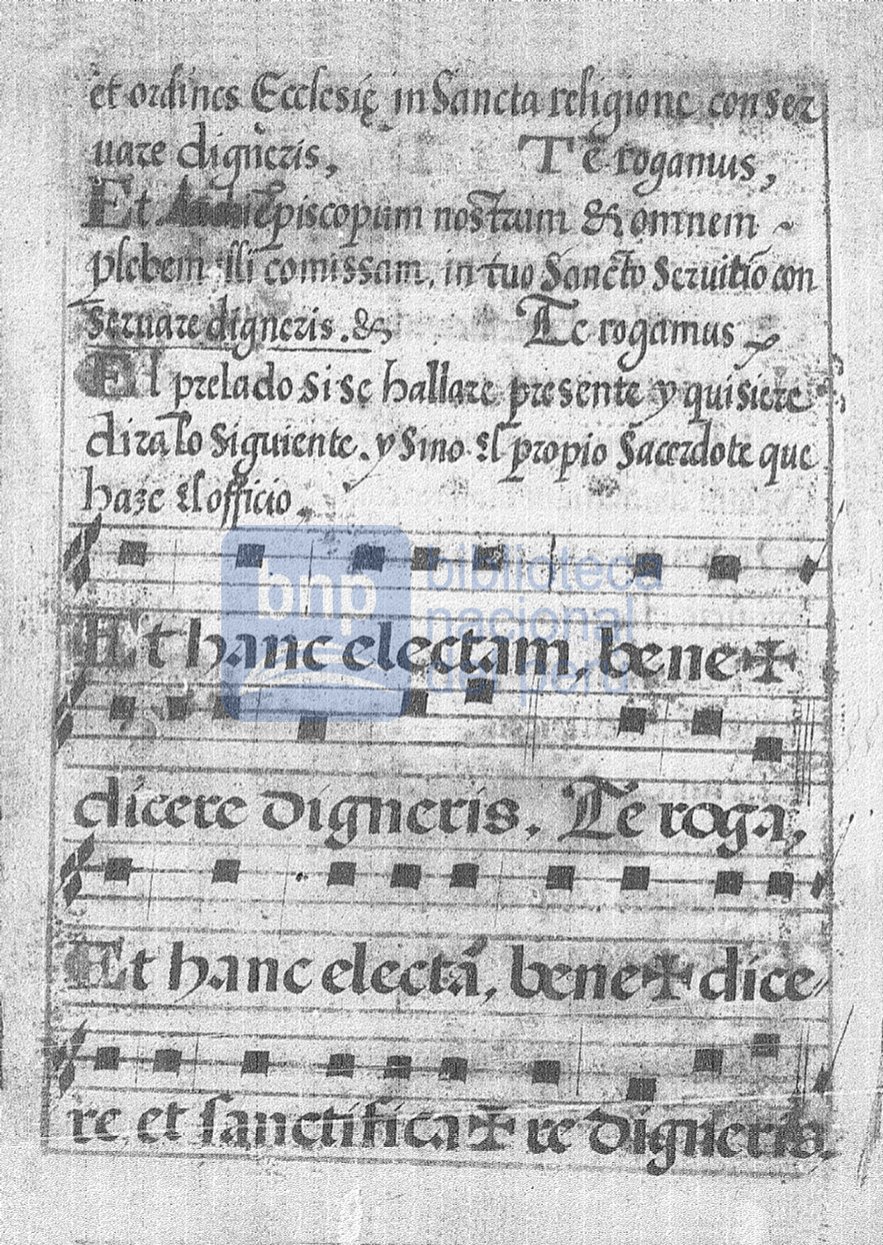 et ordines Ecclesię in Sancta religione conser
uare digneris, Te rogamus,
Et Episcopum nostrum & omnem ~
plebem illi comissam, in tuo Sancto Seruitio con
seruare digneris. & Te rogamus
El prelado si se hallare presente y quisiere
dira lo siguiente. y sino el propio Sacerdote que
haze el officio.
bnp biblioteca
nacional
del perú
Et hanc electam, bene✠
dicere digneris. Te roga,
Et hanc electã, bene✠dice
re et sanctifica✠re digneris.